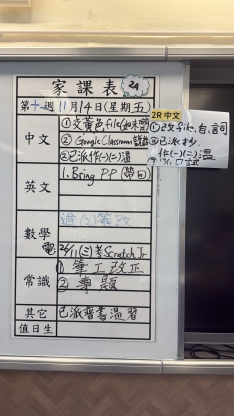 家課表 2A
第十週 11月14日(星期五)
中文
①交黃色file(如未交)
② Google Classroom
③已派作(一)(二)溫
英文
1. Bring PP (帶回)
數學
電
24/11(三)考Scratch Jr
常識
① 筆工改正
② 專題
其它
已派默書溫習
值日生
2R 中文
①改file、自、詞
②已派抄、
作(一)(二)溫